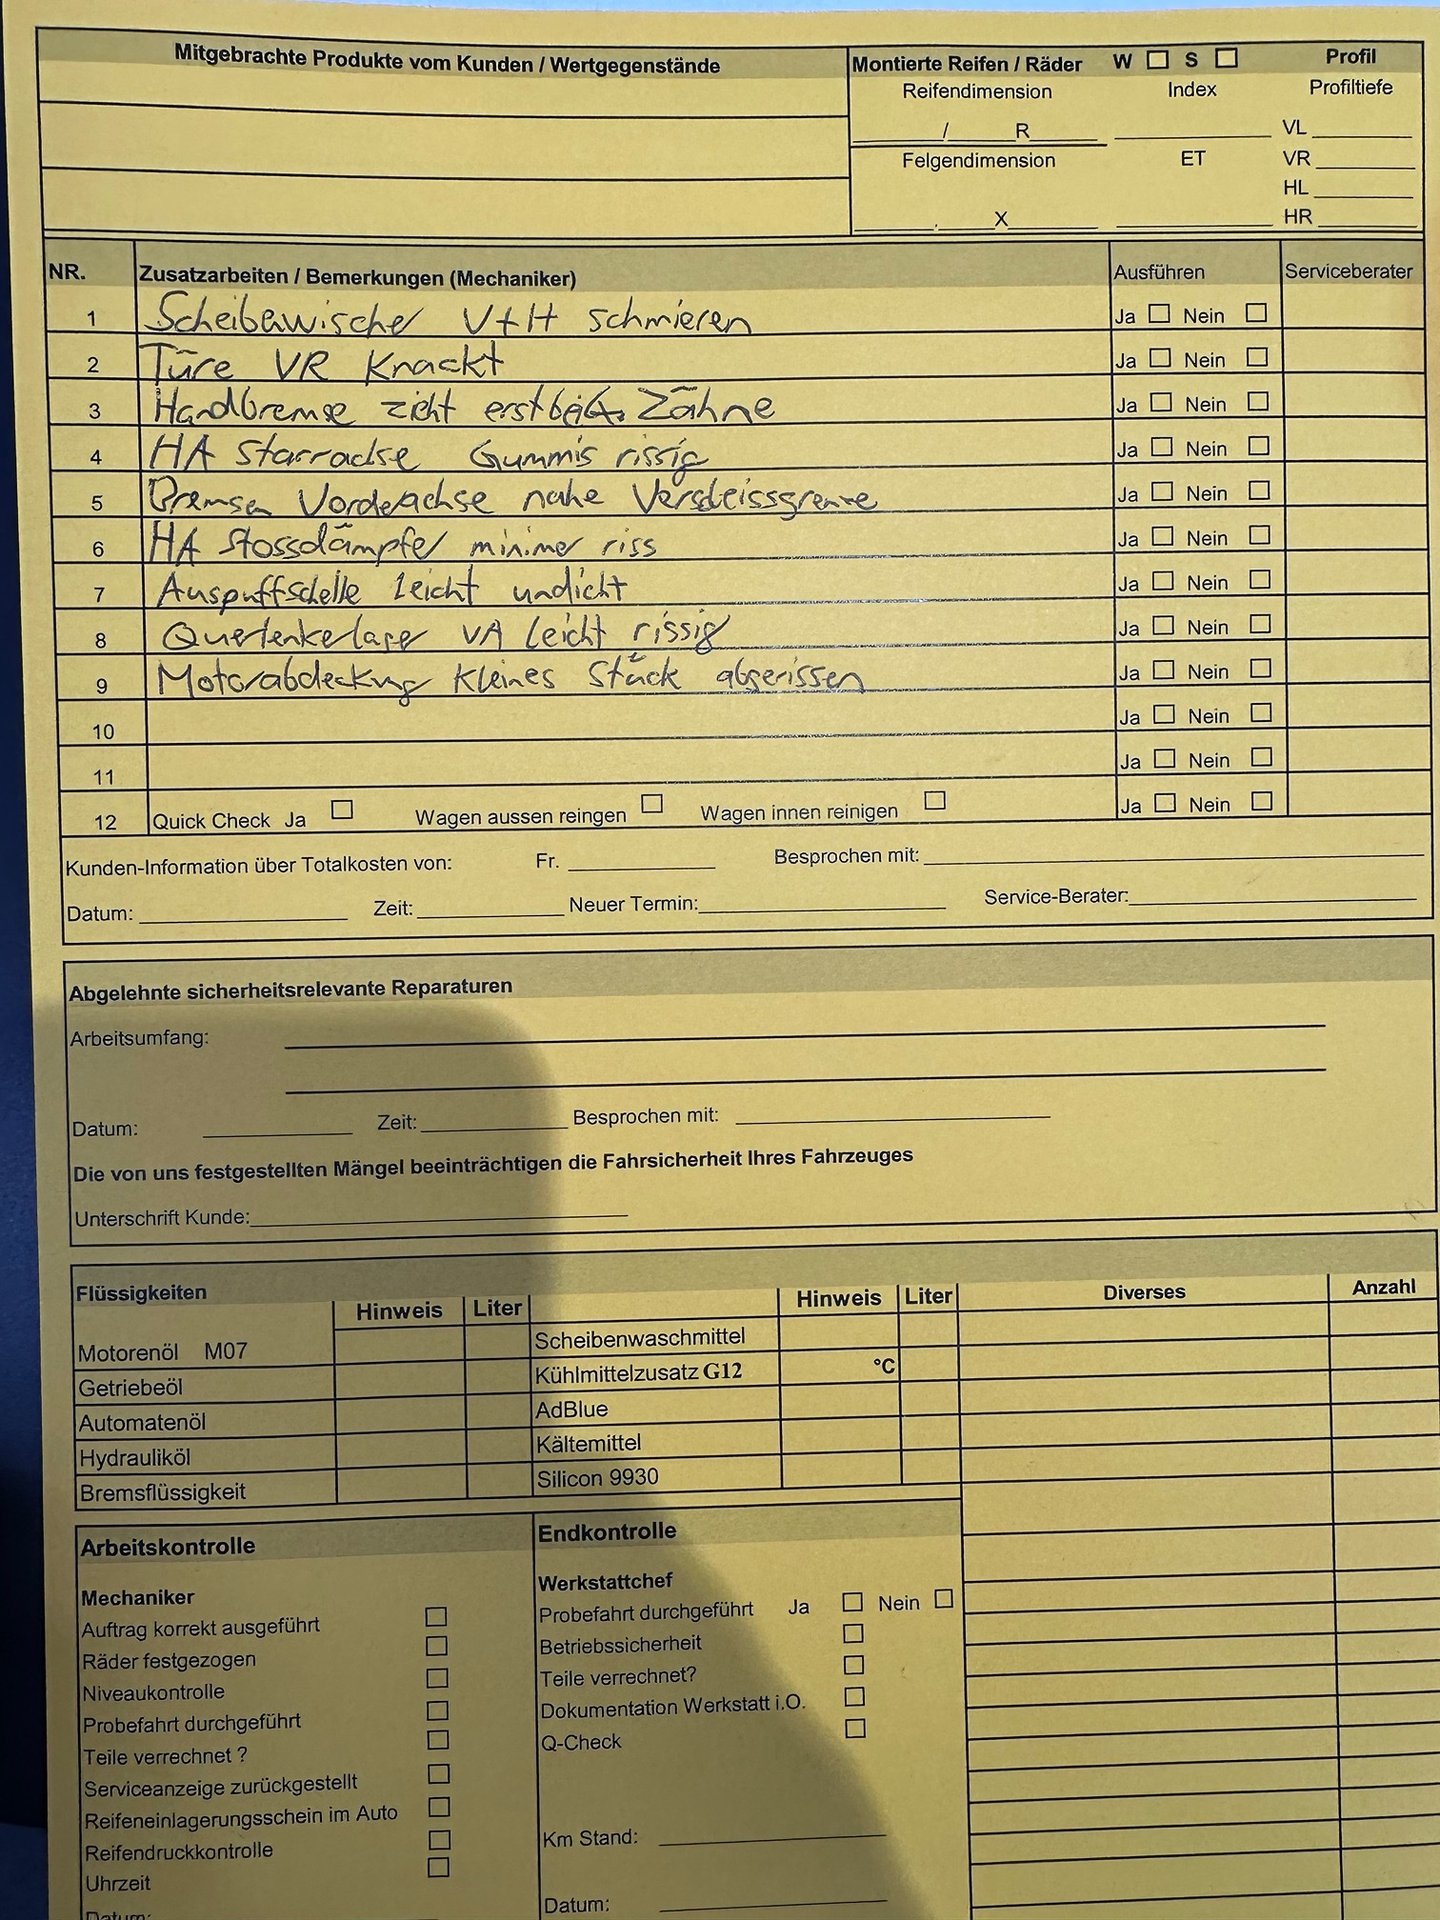 Mitgebrachte Produkte vom Kunden / Wertgegenstände
Montierte Reifen / Räder W S Profil
Reifendimension Index Profiltiefe
/ R VL
Felgendimension ET VR
HL
X HR
NR. Zusatzarbeiten / Bemerkungen (Mechaniker) Ausführen Serviceberater
1 Scheibenwischer V+H schmieren Ja Nein
2 Türe VR Knackt Ja Nein
3 Handbremse zieht erst Zähne Ja Nein
4 HA Starrachse Gummis rissig Ja Nein
5 Bremsen Vorderachse nahe Versdleissgrenze Ja Nein
6 HA Stossdämpfer minimer riss Ja Nein
7 Auspuffschelle leicht undicht Ja Nein
8 Querlenkerlager VA leicht rissig Ja Nein
9 Motorabdeckung kleines Stück abgerissen Ja Nein
10 Ja Nein
11 Ja Nein
12 Quick Check Ja Wagen aussen reingen Wagen innen reinigen Ja Nein
Kunden-Information über Totalkosten von: Fr. Besprochen mit:
Datum: Zeit: Neuer Termin: Service-Berater:
Abgelehnte sicherheitsrelevante Reparaturen
Arbeitsumfang:
Datum: Zeit: Besprochen mit:
Die von uns festgestellten Mängel beeinträchtigen die Fahrsicherheit Ihres Fahrzeuges
Unterschrift Kunde:
Flüssigkeiten Hinweis Liter Hinweis Liter Diverses Anzahl
Motorenöl M07 Scheibenwaschmittel
Getriebeöl Kühlmittelzusatz G12 °C
Automatenöl AdBlue
Hydrauliköl Kältemittel
Bremsflüssigkeit Silicon 9930
Arbeitskontrolle
Mechaniker
Auftrag korrekt ausgeführt
Räder festgezogen
Niveaukontrolle
Probefahrt durchgeführt
Teile verrechnet ?
Serviceanzeige zurückgestellt
Reifeneinlagerungsschein im Auto
Reifendruckkontrolle
Uhrzeit
Datum:
Endkontrolle
Werkstattchef
Probefahrt durchgeführt Ja Nein
Betriebssicherheit
Teile verrechnet?
Dokumentation Werkstatt i.O.
Q-Check
Km Stand:
Datum: